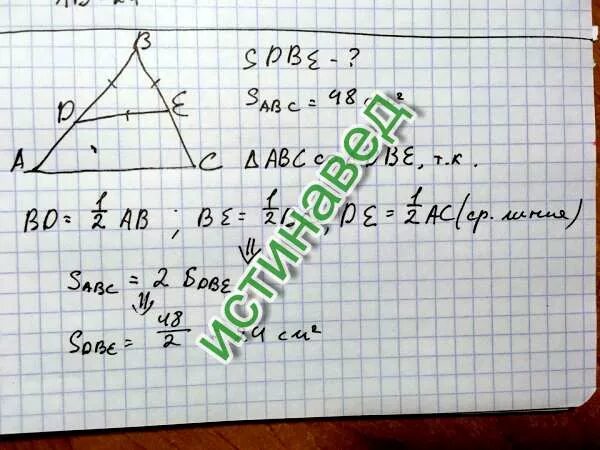 B
S DBE - ?
D
E
S ABC = 48
A
C
Δ ABC DBE, т.к.
BD = 1/2 AB ; BE = 1/2 , DE = 1/2 AC (ср. линия)
⇓
S ABC = 2 S DBE
⇓
S DBE = 48/2 см²
истинавед